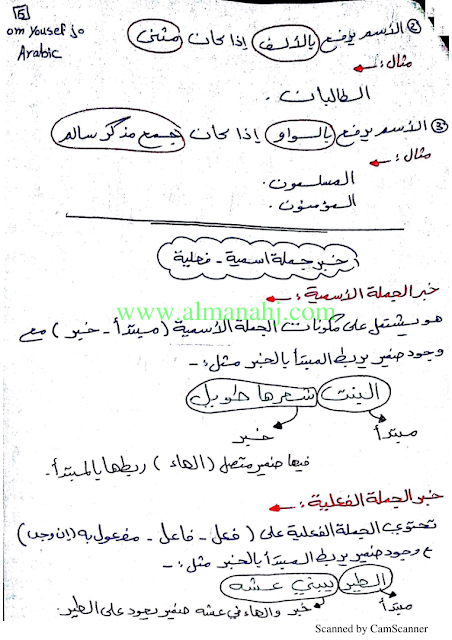 5
om Yousef jo
Arabic
② الأسم يرفع بالألف إذا كان مثنى
مثال :
الطالبان .
③ الأسم يرفع بالواو إذا كان جمع مذكر سالم
مثال :
المسلمون .
المؤمنون .
خبر جملة اسمية - فعلية
خبر الجملة الأسمية :
www.almanahj.com
هو يشتمل على مكونات الجملة الأسمية ( مبتدأ - خبر ) مع
وجود ضمير يربط المبتدأ بالخبر مثل : -
البنت شعرها طويل
مبتدأ خبر
فيها ضمير متصل ( الهاء ) ربطها بالمبتدأ .
خبر الجملة الفعلية :
تحتوي الجملة الفعلية على ( فعل - فاعل - مفعول به (إن وجد)
ع وجود ضمير يربط المبتدأ بالخبر مثل : -
الطير يبني عشه
مبتدأ خبر والهاء في عشه ضمير يعود على الطير .
Scanned by CamScanner